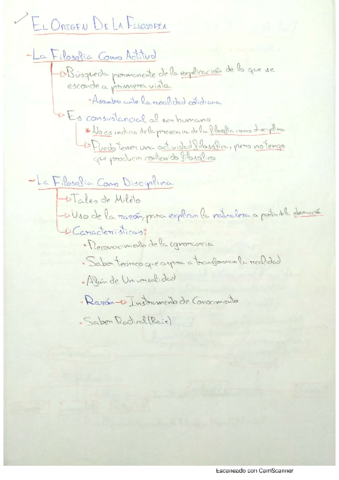 El Origen De La Filosofía
- La Filosofía Como Actitud
Búsqueda permanente de la explicación de lo que se
esconde a primera vista
• Asombro ante la realidad cotidiana
Es consustancial al ser humano
No es indicio de la presencia de la filosofía como disciplina
Puedo tener una actividad filosófica, pero no tengo
que producir contenido filosófico
- La Filosofía Como Disciplina
Tales de Mileto
Uso de la razón, para explicar la naturaleza a partir del
Características:
• Reconocimiento de la ignorancia
• Saber teórico que aspira a transformar la realidad
• Afán de Universalidad
• Razón → Instrumento de Conocimiento
• Saber Radical (Raíz)
Escaneado con CamScanner